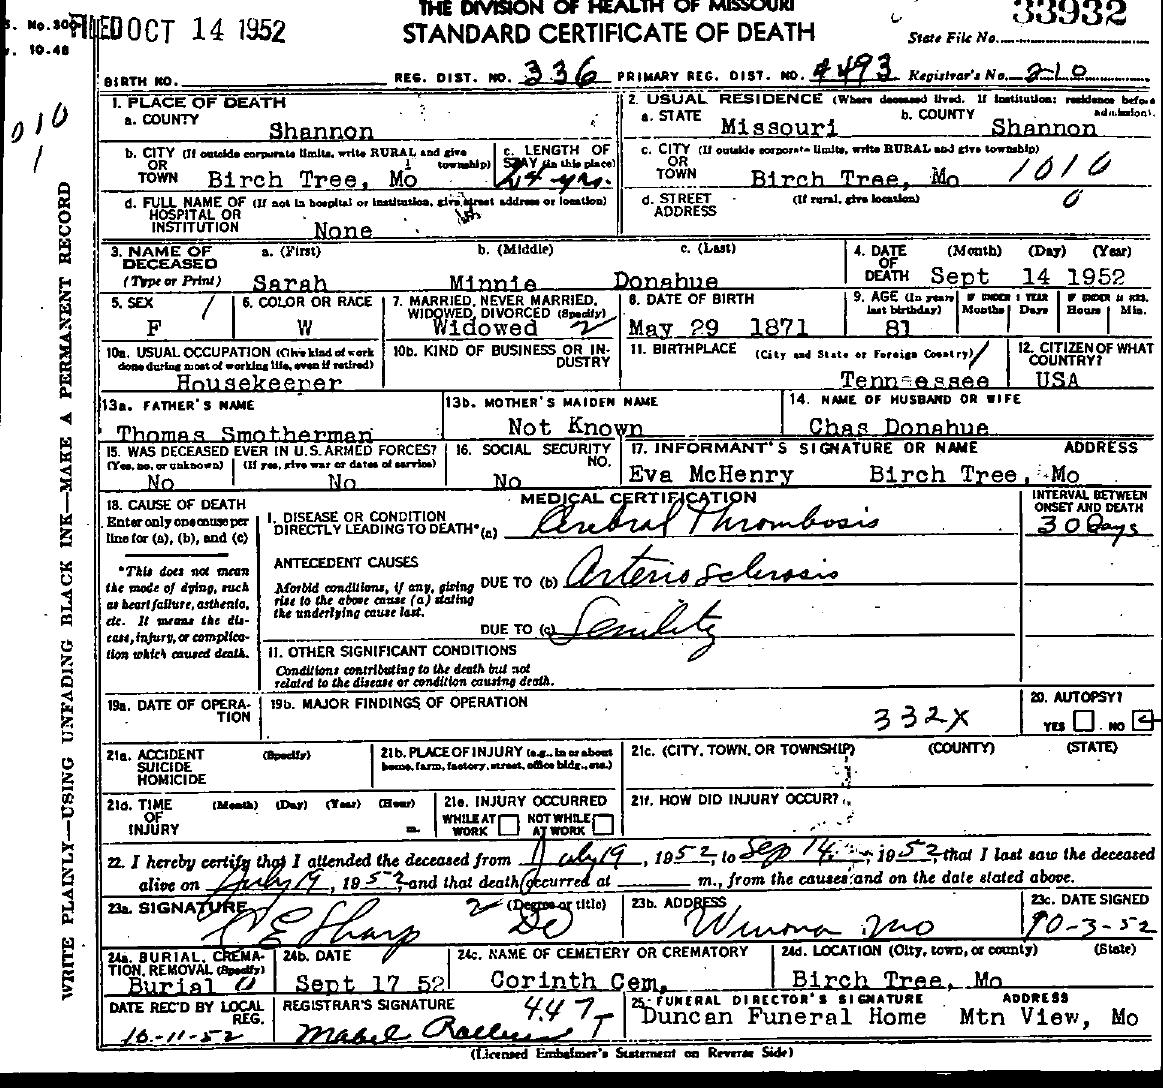 THE DIVISION OF HEALTH OF MISSOURI
STANDARD CERTIFICATE OF DEATH
S. No. 300
10-48
FILED OCT 14 1952
33932
State File No.
BIRTH NO. REG. DIST. NO. 336 PRIMARY REG. DIST. NO. 4493 Registrar's No. 210
010
1
WRITE PLAINLY—USING UNFADING BLACK INK—MAKE A PERMANENT RECORD
1. PLACE OF DEATH
a. COUNTY Shannon
2. USUAL RESIDENCE (Where deceased lived. If institution: residence before admission).
a. STATE Missouri b. COUNTY Shannon
b. CITY (If outside corporate limits, write RURAL and give township) OR TOWN Birch Tree, Mo
c. LENGTH OF STAY (in this place) 24 yrs.
c. CITY (If outside corporate limits, write RURAL and give township) OR TOWN Birch Tree, Mo 1010
d. FULL NAME OF (If not in hospital or institution, give street address or location) HOSPITAL OR INSTITUTION None
d. STREET ADDRESS (If rural, give location) 0
3. NAME OF DECEASED (Type or Print) a. (First) Sarah b. (Middle) Minnie c. (Last) Donahue
4. DATE OF DEATH (Month) (Day) (Year) Sept 14 1952
5. SEX F 1
6. COLOR OR RACE W
7. MARRIED, NEVER MARRIED, WIDOWED, DIVORCED (Specify) Widowed 2
8. DATE OF BIRTH May 29 1871
9. AGE (In years last birthday) 81 IF UNDER 1 YEAR Months Days IF UNDER 24 HRS. Hours Min.
10a. USUAL OCCUPATION (Give kind of work done during most of working life, even if retired) Housekeeper
10b. KIND OF BUSINESS OR INDUSTRY
11. BIRTHPLACE (City and State or Foreign Country) Tennsessee
12. CITIZEN OF WHAT COUNTRY? USA
13a. FATHER'S NAME Thomas Smotherman
13b. MOTHER'S MAIDEN NAME Not Known
14. NAME OF HUSBAND OR WIFE Chas Donahue
15. WAS DECEASED EVER IN U.S. ARMED FORCES? (Yes, no, or unknown) No (If yes, give war or dates of service) No
16. SOCIAL SECURITY NO. No
17. INFORMANT'S SIGNATURE OR NAME ADDRESS Eva McHenry Birch Tree, Mo
18. CAUSE OF DEATH
Enter only one cause per line for (a), (b), and (c)
*This does not mean the mode of dying, such as heart failure, asthenia, etc. It means the disease, injury, or complication which caused death.
MEDICAL CERTIFICATION
INTERVAL BETWEEN ONSET AND DEATH
I. DISEASE OR CONDITION DIRECTLY LEADING TO DEATH* (a) Cerebral Thrombosis 30 Days
ANTECEDENT CAUSES
Morbid conditions, if any, giving rise to the above cause (a) stating the underlying cause last.
DUE TO (b) Arterio sclerosis
DUE TO (c) Senility
II. OTHER SIGNIFICANT CONDITIONS
Conditions contributing to the death but not related to the disease or condition causing death.
19a. DATE OF OPERATION
19b. MAJOR FINDINGS OF OPERATION
332X
20. AUTOPSY?
YES NO
21a. ACCIDENT SUICIDE HOMICIDE (Specify)
21b. PLACE OF INJURY (e.g., in or about home, farm, factory, street, office bldg., etc.)
21c. (CITY, TOWN, OR TOWNSHIP) (COUNTY) (STATE)
21d. TIME OF INJURY (Month) (Day) (Year) (Hour) m.
21e. INJURY OCCURRED WHILE AT WORK NOT WHILE AT WORK
21f. HOW DID INJURY OCCUR?
22. I hereby certify that I attended the deceased from July 19, 1952, to Sep 14, 1952, that I last saw the deceased
alive on July 19, 1952, and that death occurred at m., from the causes and on the date stated above.
23a. SIGNATURE (Degree or title) C E Sharp DO 2
23b. ADDRESS Winona Mo
23c. DATE SIGNED 10-3-52
24a. BURIAL, CREMATION, REMOVAL (Specify) Burial 0
24b. DATE Sept 17 52
24c. NAME OF CEMETERY OR CREMATORY Corinth Cem,
24d. LOCATION (City, town, or county) (State) Birch Tree, Mo
DATE REC'D BY LOCAL REG. 10-11-52
REGISTRAR'S SIGNATURE Mabel 447
25. FUNERAL DIRECTOR'S SIGNATURE ADDRESS Duncan Funeral Home Mtn View, Mo
(Licensed Embalmer's Statement on Reverse Side)